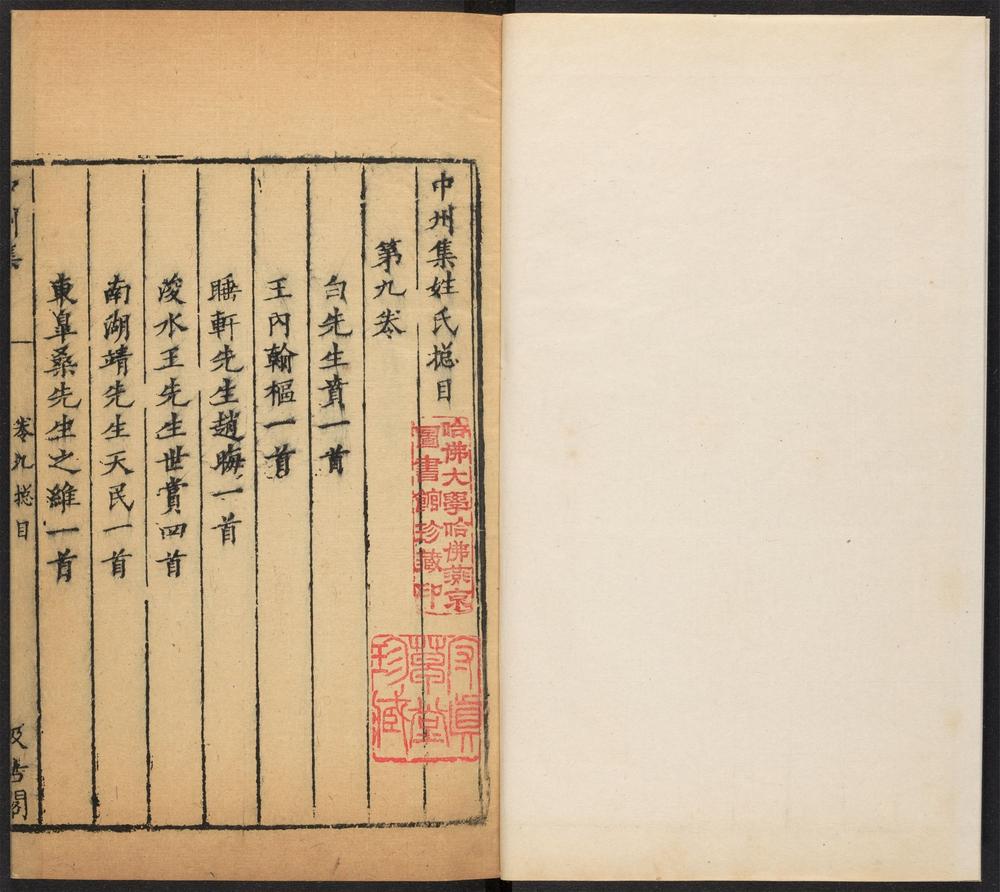 中州集姓氏揔目
第九卷
白先生賁一首
王內翰樞一首
睡軒先生趙晦一首
浚水王先生世賞四首
南湖靖先生天民一首
東皐桑先生之維一首
中州集
卷九揔目
汲古閣
哈佛大學哈佛燕京
圖書館珍藏印
守真
草堂
珍藏